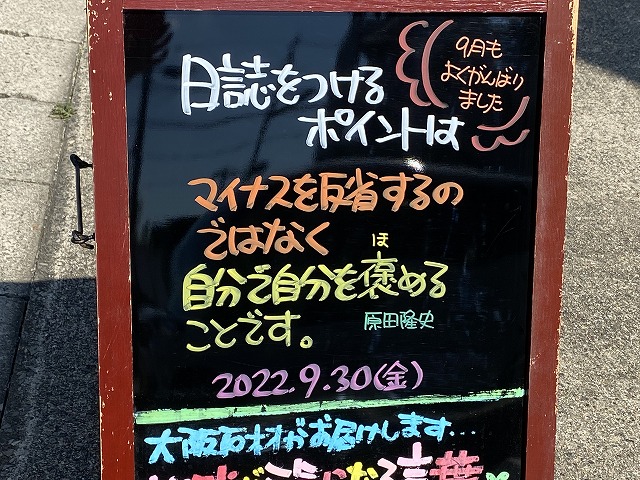 9月も
よくがんばり
ました
日誌をつける
ポイントは
マイナスを反省するの
ではなく
ほ
自分で自分を褒める
ことです。
原田隆史
2022.9.30(金)
大阪石材がお届けします...
になる言葉